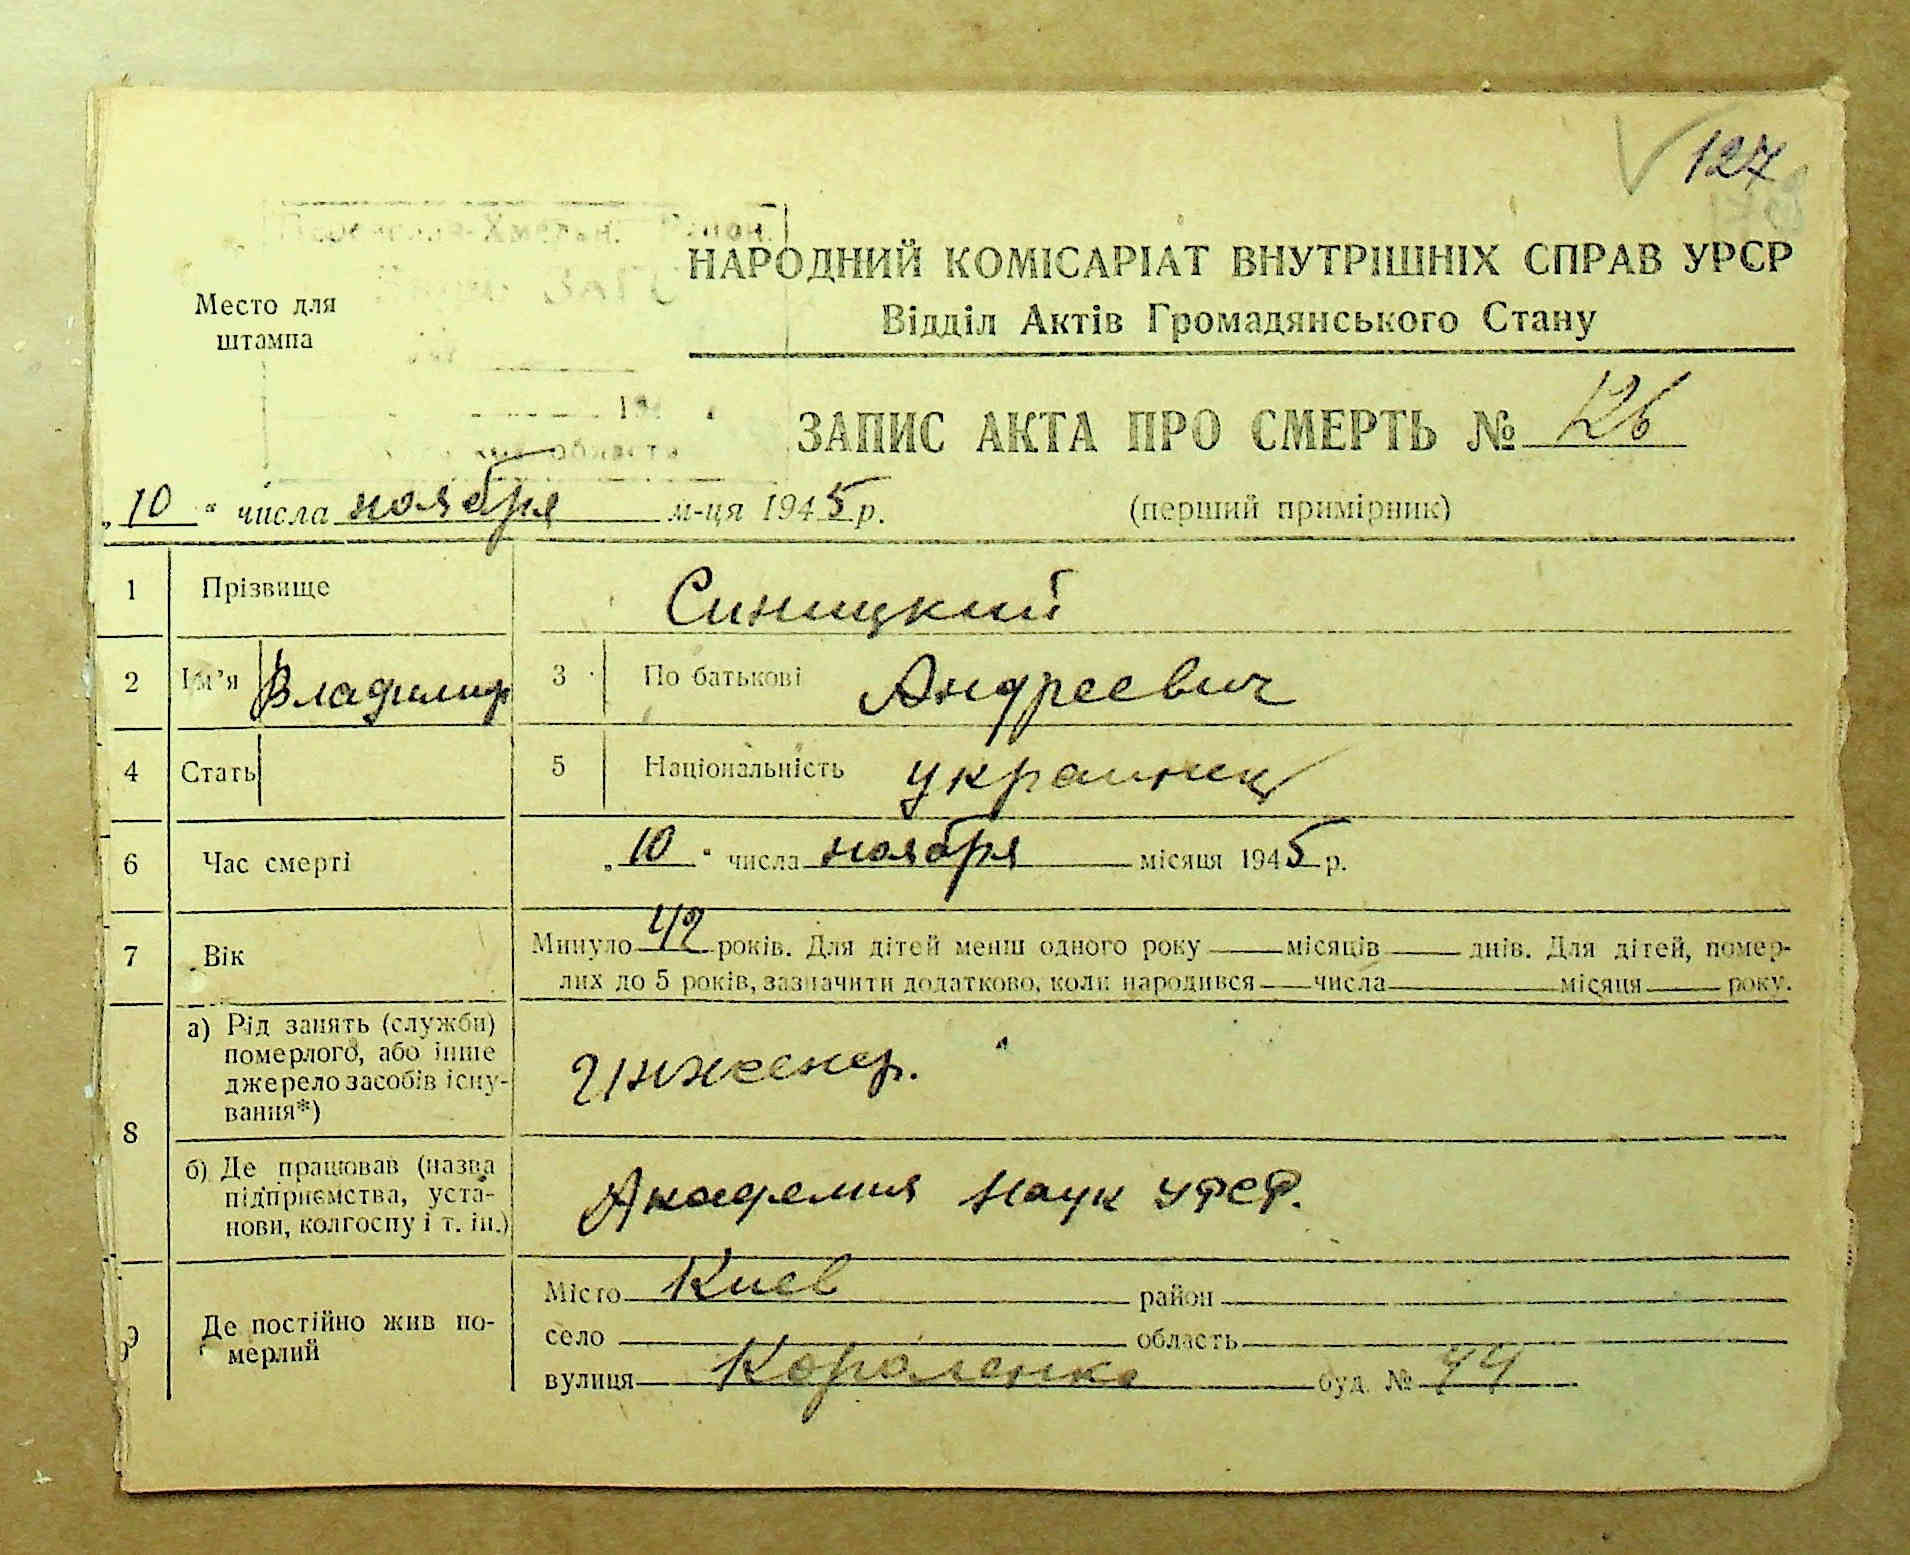 127
НАРОДНИЙ КОМІСАРІАТ ВНУТРІШНІХ СПРАВ УРСР
Відділ Актів Громадянського Стану
Место для
штампа
ЗАПИС АКТА ПРО СМЕРТЬ № 126
„10“ числа ноября м-ця 1945 р.
(перший примірник)
1 Прізвище Синицкий
2 Ім’я Владимир 3 По батькові Андреевич
4 Стать 5 Національність украинец
6 Час смерті „10“ числа ноября місяця 1945 р.
7 Вік Минуло 42 років. Для дітей менш одного року місяців днів. Для дітей, помер-
лих до 5 років, зазначити додатково, коли народився числа місяця року.
8 а) Рід занять (служби)
померлого, або інше
джерело засобів існу-
вання*)
Инженер.
б) Де працював (назва
підприємства, уста-
нови, колгоспу і т. ін.)
Академия Наук УРСР.
9 Де постійно жив по-
мерлий
Місто Киев район
село область
вулиця Короленко буд. № 44